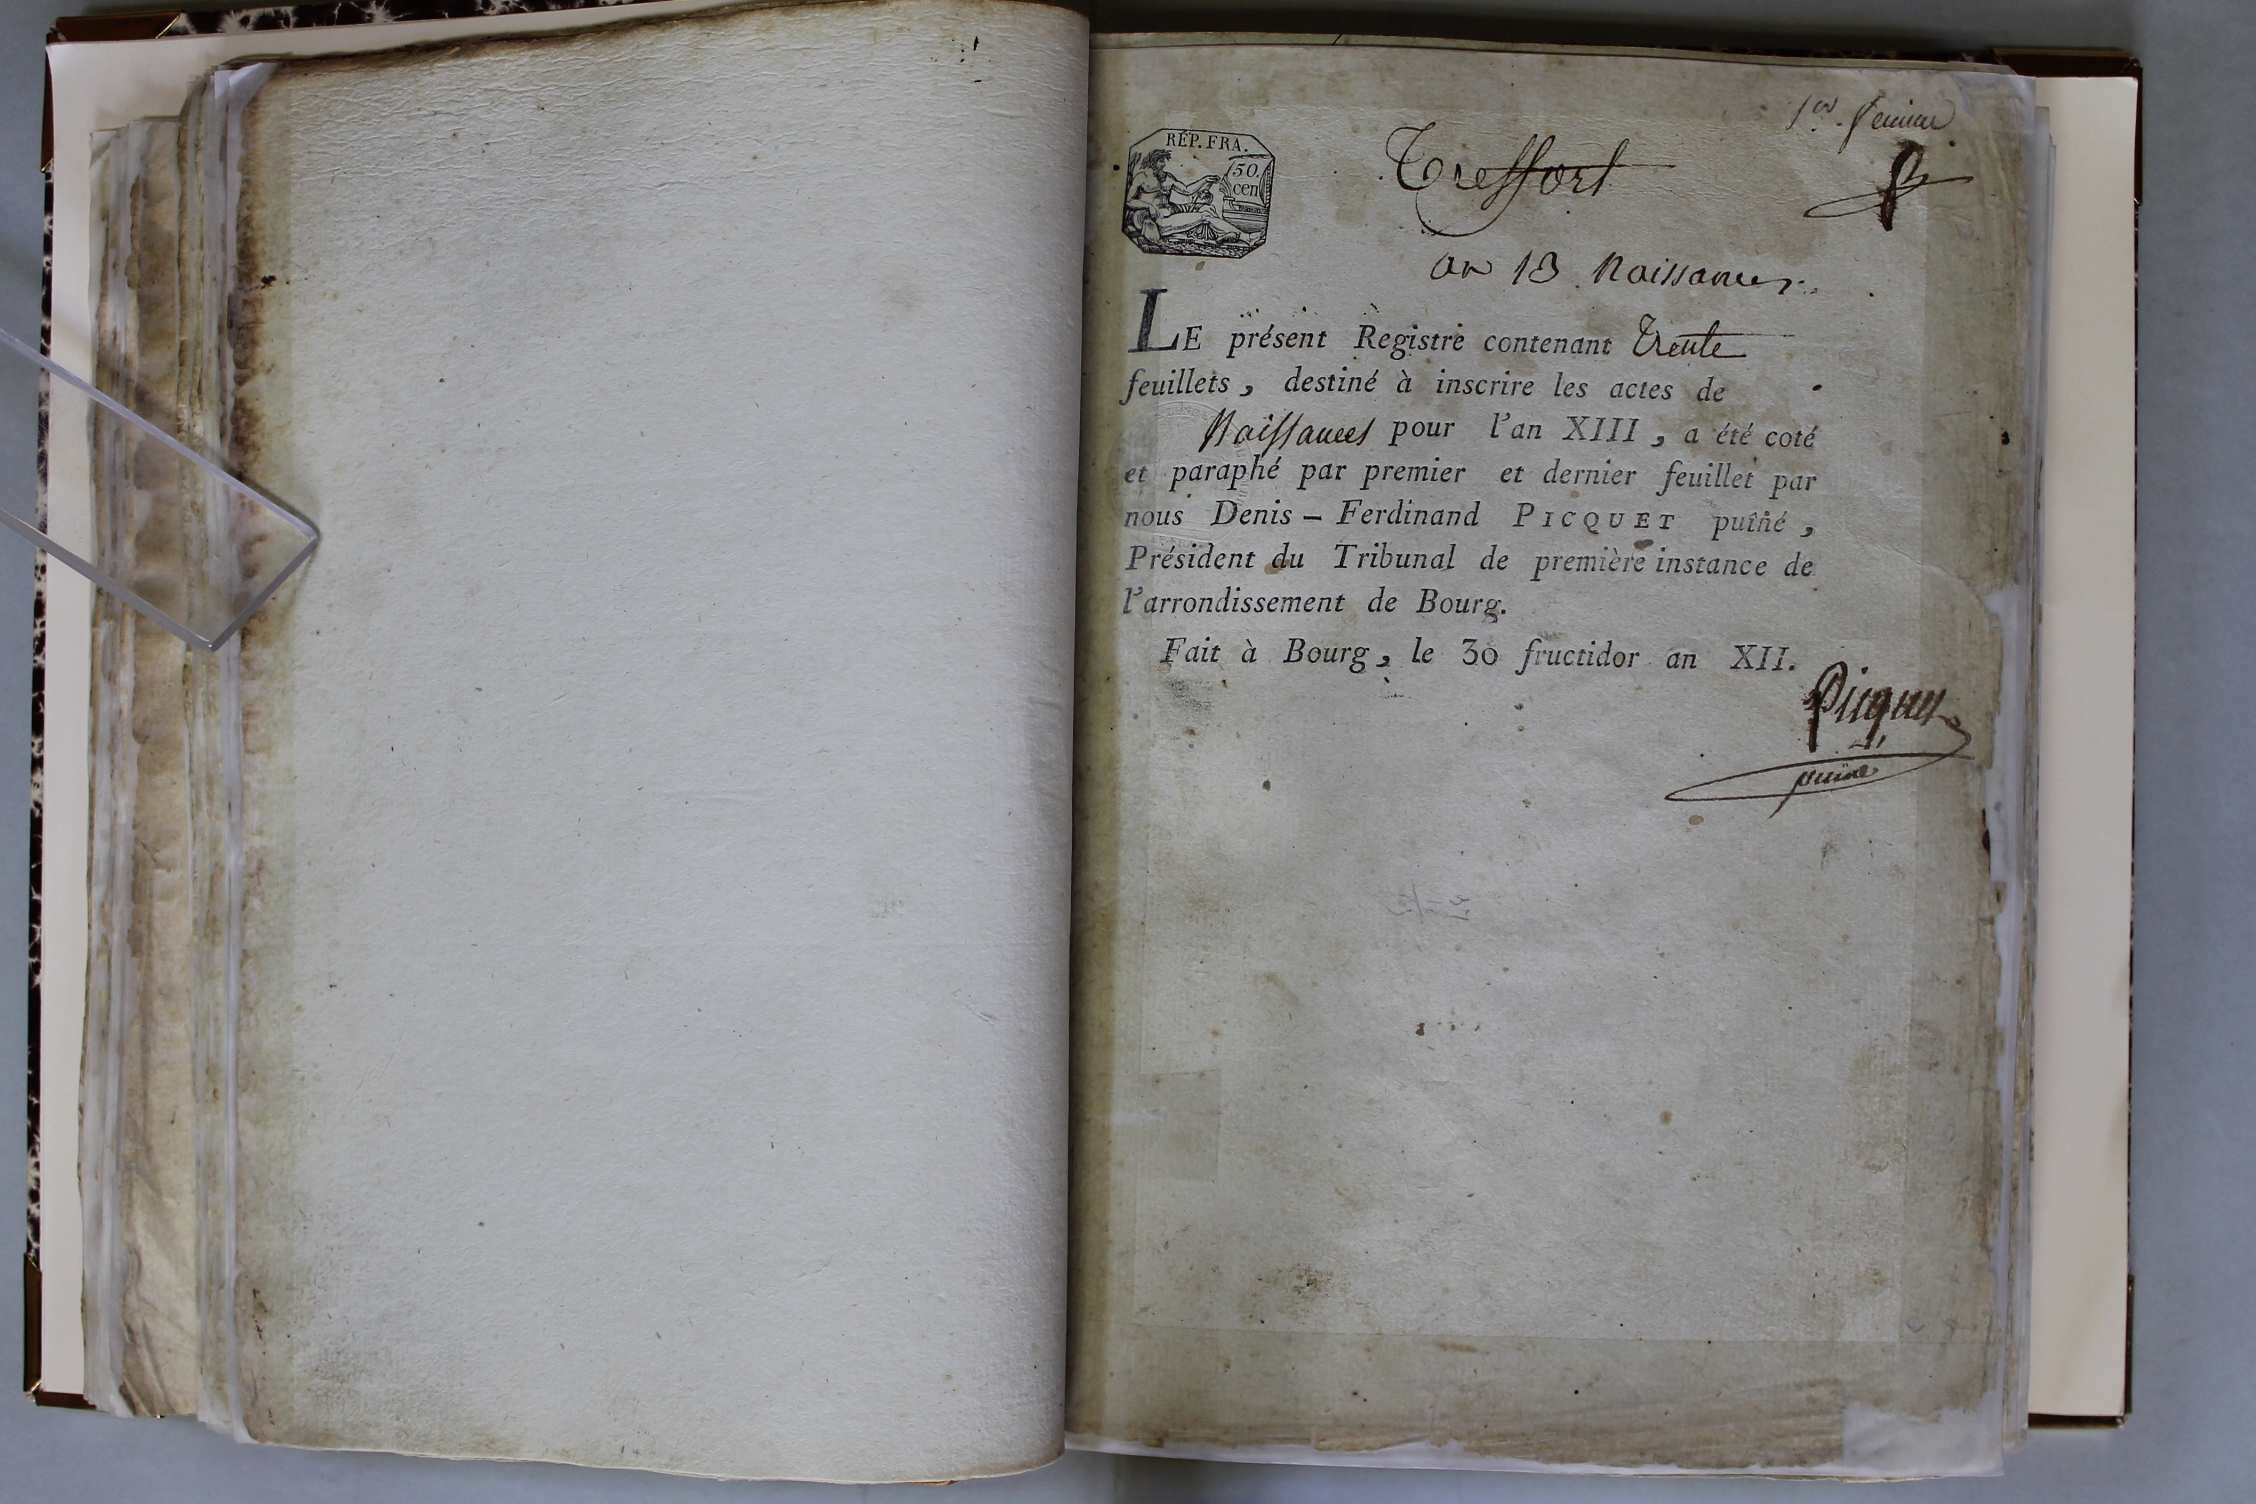 1er. feuillet
RÉP. FRA.
50.
cen
Treffort
an 13 Naissances.
LE présent Registre contenant Trente
feuillets, destiné à inscrire les actes de
Naissances pour l'an XIII, a été coté
et paraphé par premier et dernier feuillet par
nous Denis-Ferdinand PICQUET puîné,
Président du Tribunal de première instance de
l'arrondissement de Bourg.
Fait à Bourg, le 30 fructidor an XII.
Picquet
puiné